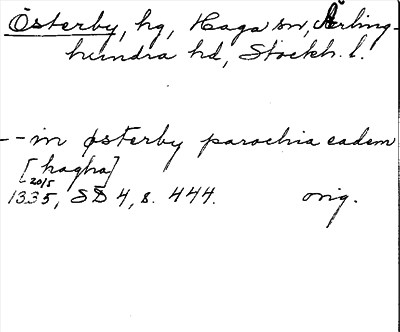 Österby, hg, Haga sn, Ärling-
hundra hd, Stockh. l.
-- in østerby parochia eadem
[hagha]
20/5
1335, SD 4, s. 444. orig.